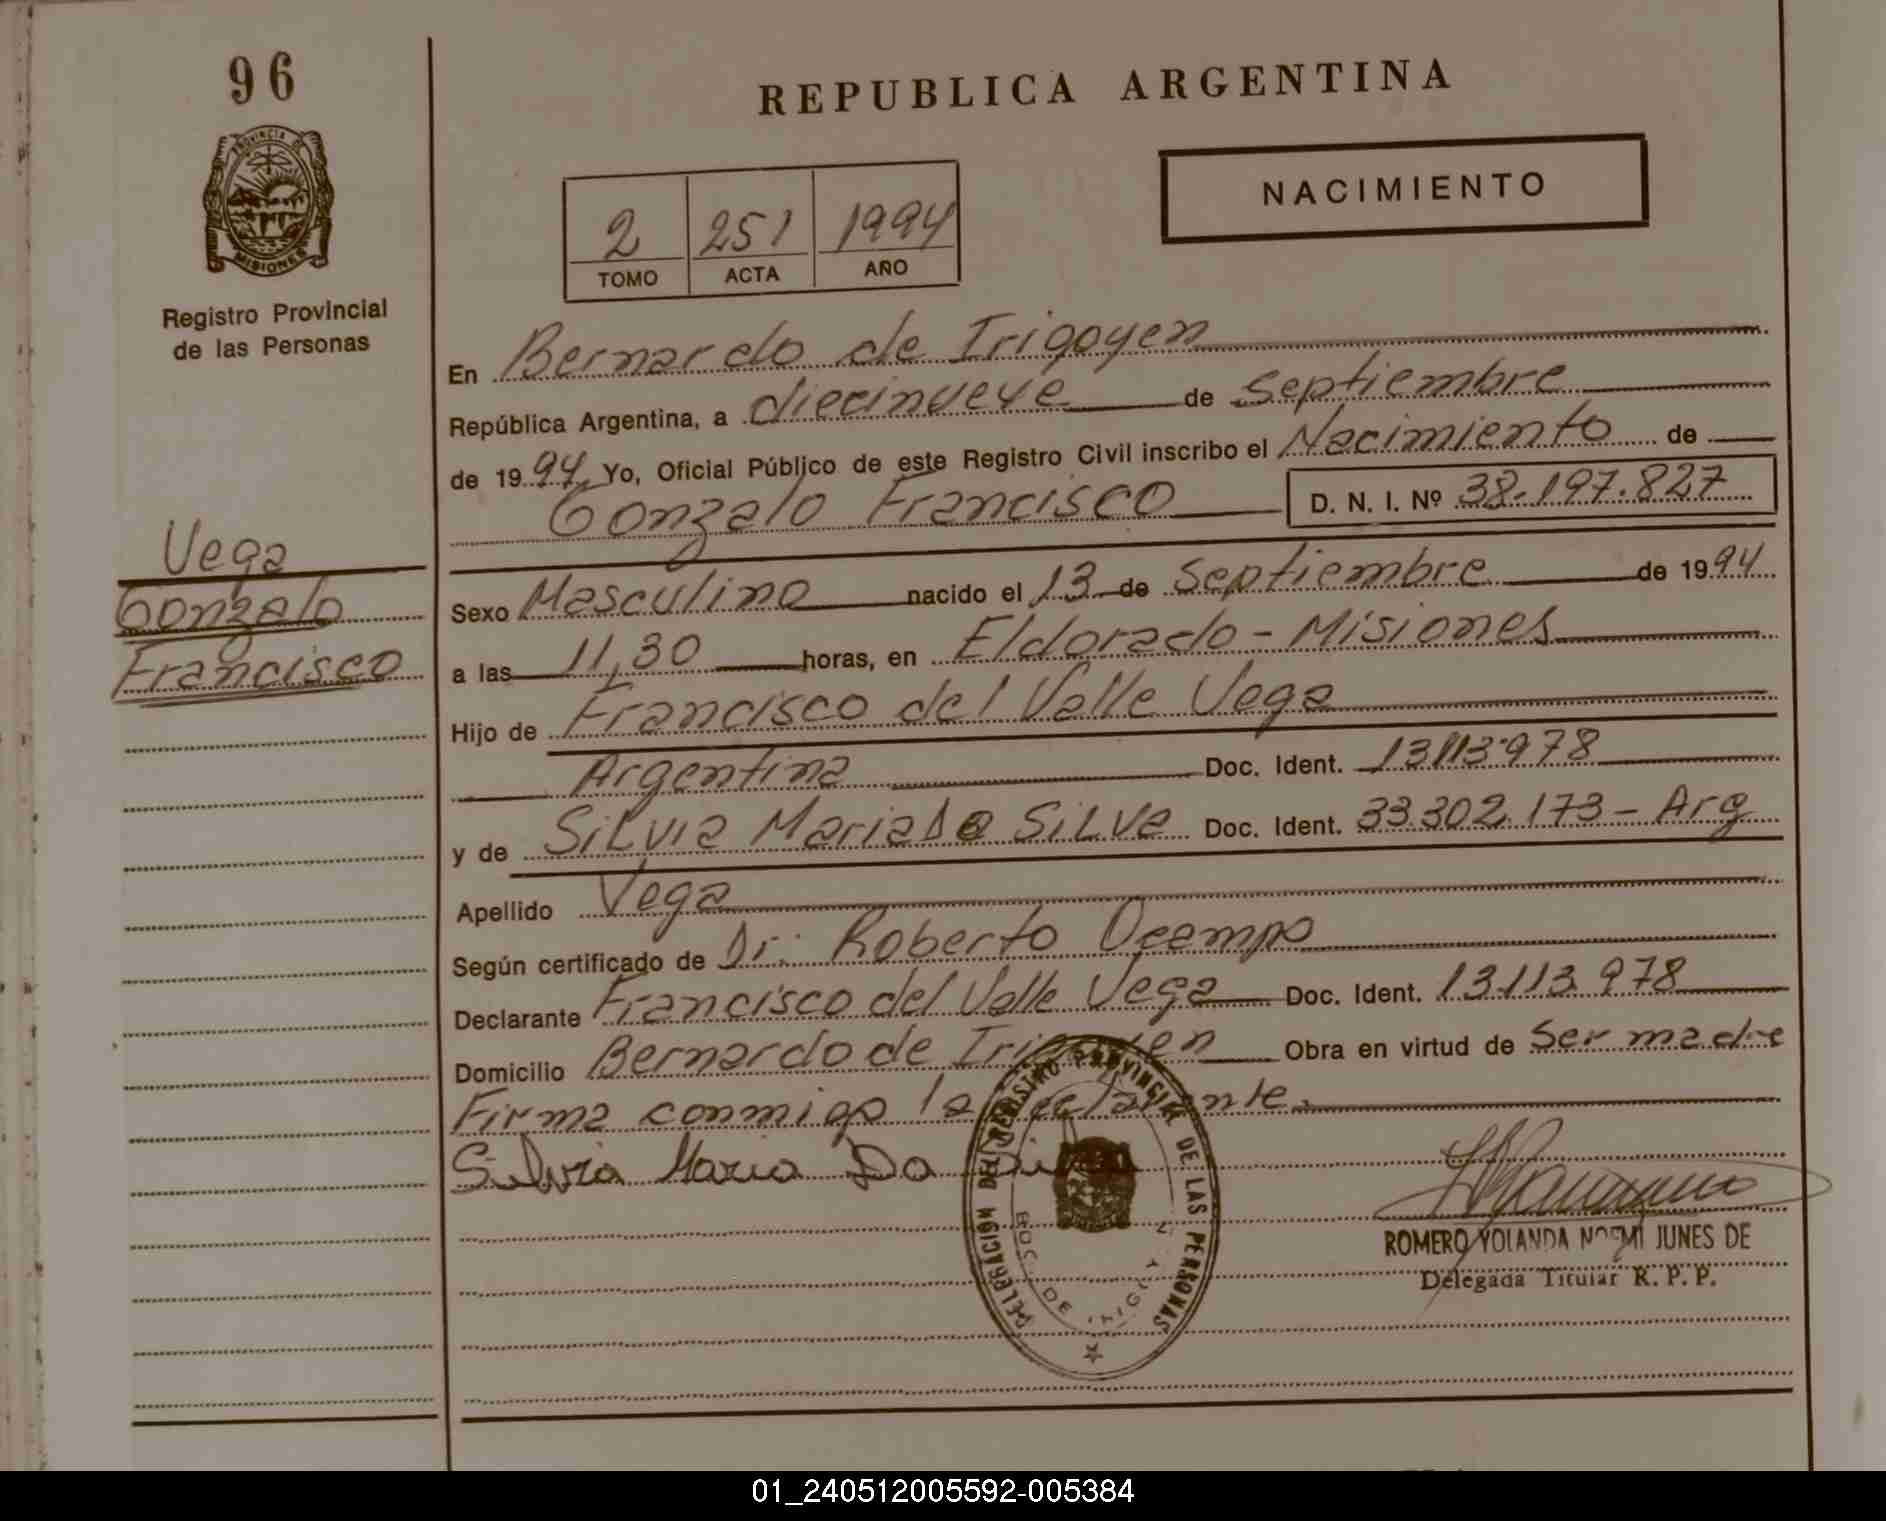 96
PROVINCIA DE
MISIONES
Registro Provincial
de las Personas
Vega
Gonzalo
Francisco
REPUBLICA ARGENTINA
NACIMIENTO
2 251 1994
TOMO ACTA AÑO
En Bernardo de Irigoyen
República Argentina, a diecinueve de Septiembre
de 1994 Yo, Oficial Público de este Registro Civil inscribo el Nacimiento de
Gonzalo Francisco D. N. I. Nº 38.197.827
Sexo Masculino nacido el 13 de Septiembre de 1994
a las 11,30 horas, en Eldorado - Misiones
Hijo de Francisco del Valle Vega
Argentina Doc. Ident. 13113.978
y de Silvia Maria Da Silva Doc. Ident. 33.302.173 - Arg
Apellido Vega
Según certificado de Dr. Roberto Ocampo
Declarante Francisco del Valle Vega Doc. Ident. 13.113.978
Domicilio Bernardo de Irigoyen Obra en virtud de Ser madre
Firma conmigo la declarante.
Silvia Maria Da Silva
DELEGACION DEL REGISTRO PROVINCIAL DE LAS PERSONAS
BDO. DE IRIGOYEN
ROMERO YOLANDA NOEMI JUNES DE
Delegada Titular R. P. P.
01_240512005592-005384